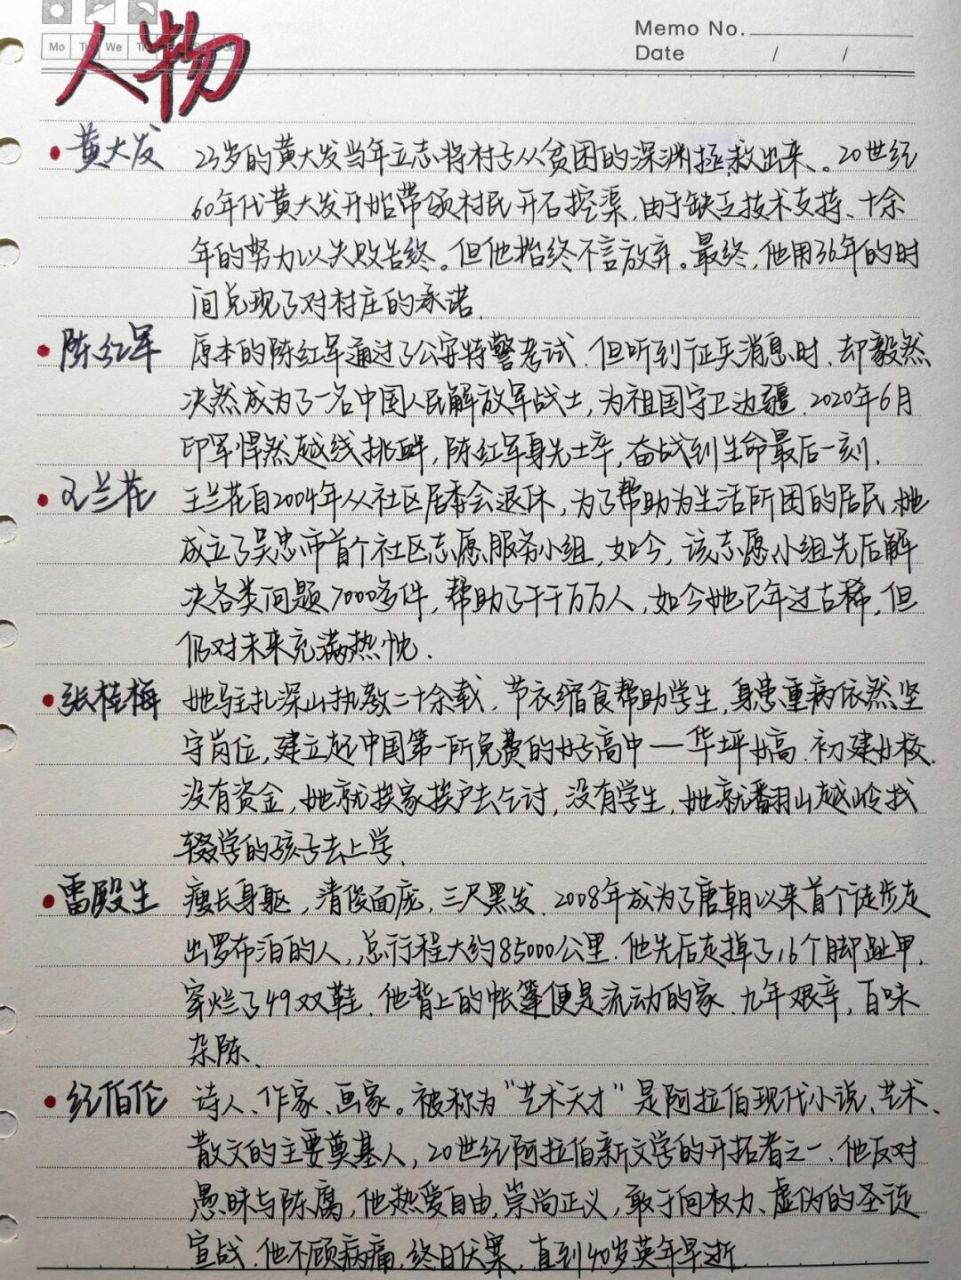 Memo No.
Mo Tu We
Date / /
人物
黄大发 23岁的黄大发当年立志将村子从贫困的深渊拯救出来。20世纪
60年代黄大发开始带领村民开石挖渠,由于缺乏技术支持、十余
年的努力以失败告终。但他始终不言放弃。最终,他用36年的时
间兑现了对村庄的承诺.
陈红军 原本的陈红军通过了公安特警考试.但听到征兵消息时、却毅然
决然成为了一名中国人民解放军战士,为祖国守卫边疆.2020年6月
印军悍然越线挑衅,陈红军身先士卒,奋战到生命最后一刻.
王兰花 王兰花自2004年从社区居委会退休,为了帮助为生活所困的居民,她
成立了吴忠市首个社区志愿服务小组,如今,该志愿小组先后解
决各类问题7000多件,帮助了千千万万人,如今她已年过古稀,但
仍对未来充满热忱.
张桂梅 她驻扎深山执教二十余载,节衣缩食帮助学生,身患重病依然坚
守岗位,建立起中国第一所免费的女子高中——华坪女高.初建女校,
没有资金,她就挨家挨户去乞讨,没有学生,她就翻山越岭找
辍学的孩子去上学、
雷殿生 瘦长身躯,清俊面庞,三尺黑发.2008年成为了唐朝以来首个徒步走
出罗布泊的人,总行程大约85000公里.他先后走掉了16个脚趾甲,
穿烂了49双鞋.他背上的帐篷便是流动的家.九年艰辛,百味
杂陈、
纪伯伦 诗人、作家、画家。被称为“艺术天才”是阿拉伯现代小说、艺术、
散文的主要奠基人,20世纪阿拉伯新文学的开拓者之一.他反对
愚昧与陈腐,他热爱自由,崇尚正义,敢于向权力、虚伪的圣徒
宣战.他不顾病痛,终日伏案,直到40岁英年早逝.